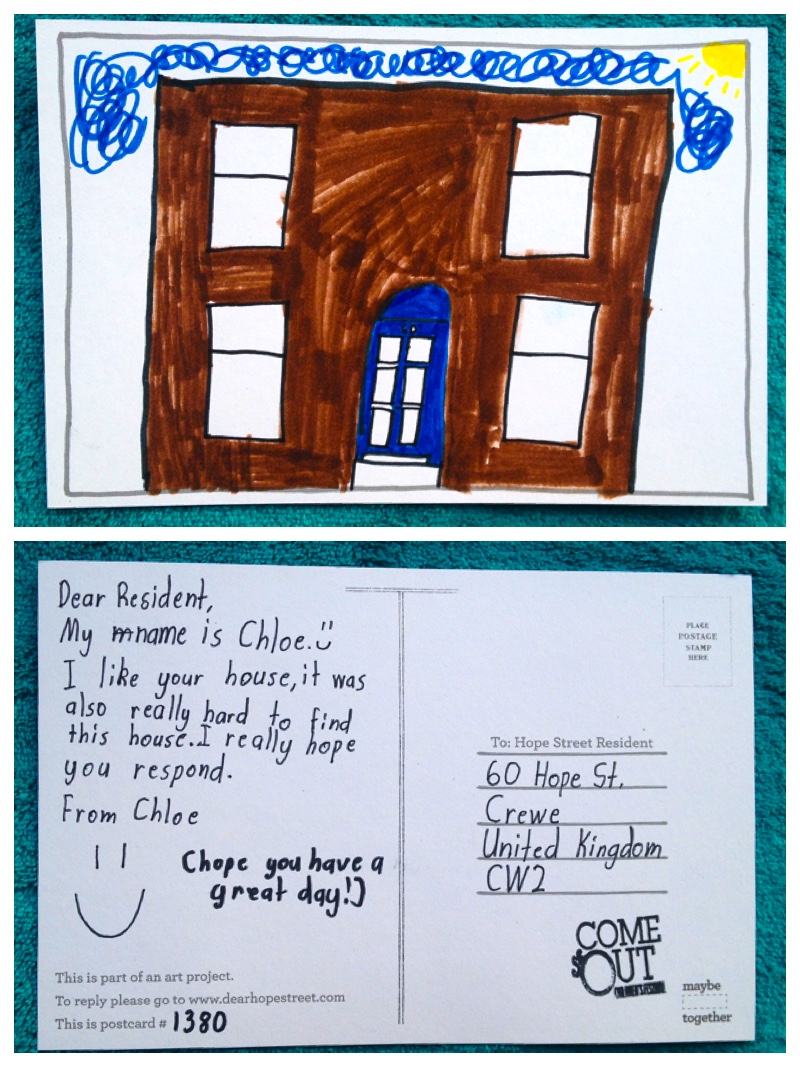 Dear Resident,
My name is Chloe.
I like your house,it was
also really hard to find
this house.I really hope
you respond.
From Chloe
(hope you have a
great day!)
This is part of an art project.
To reply please go to www.dearhopestreet.com
This is postcard # 1380
PLACE
POSTAGE
STAMP
HERE
To: Hope Street Resident
60 Hope St,
Crewe
United Kingdom
CW2
COME
OUT
maybe
together